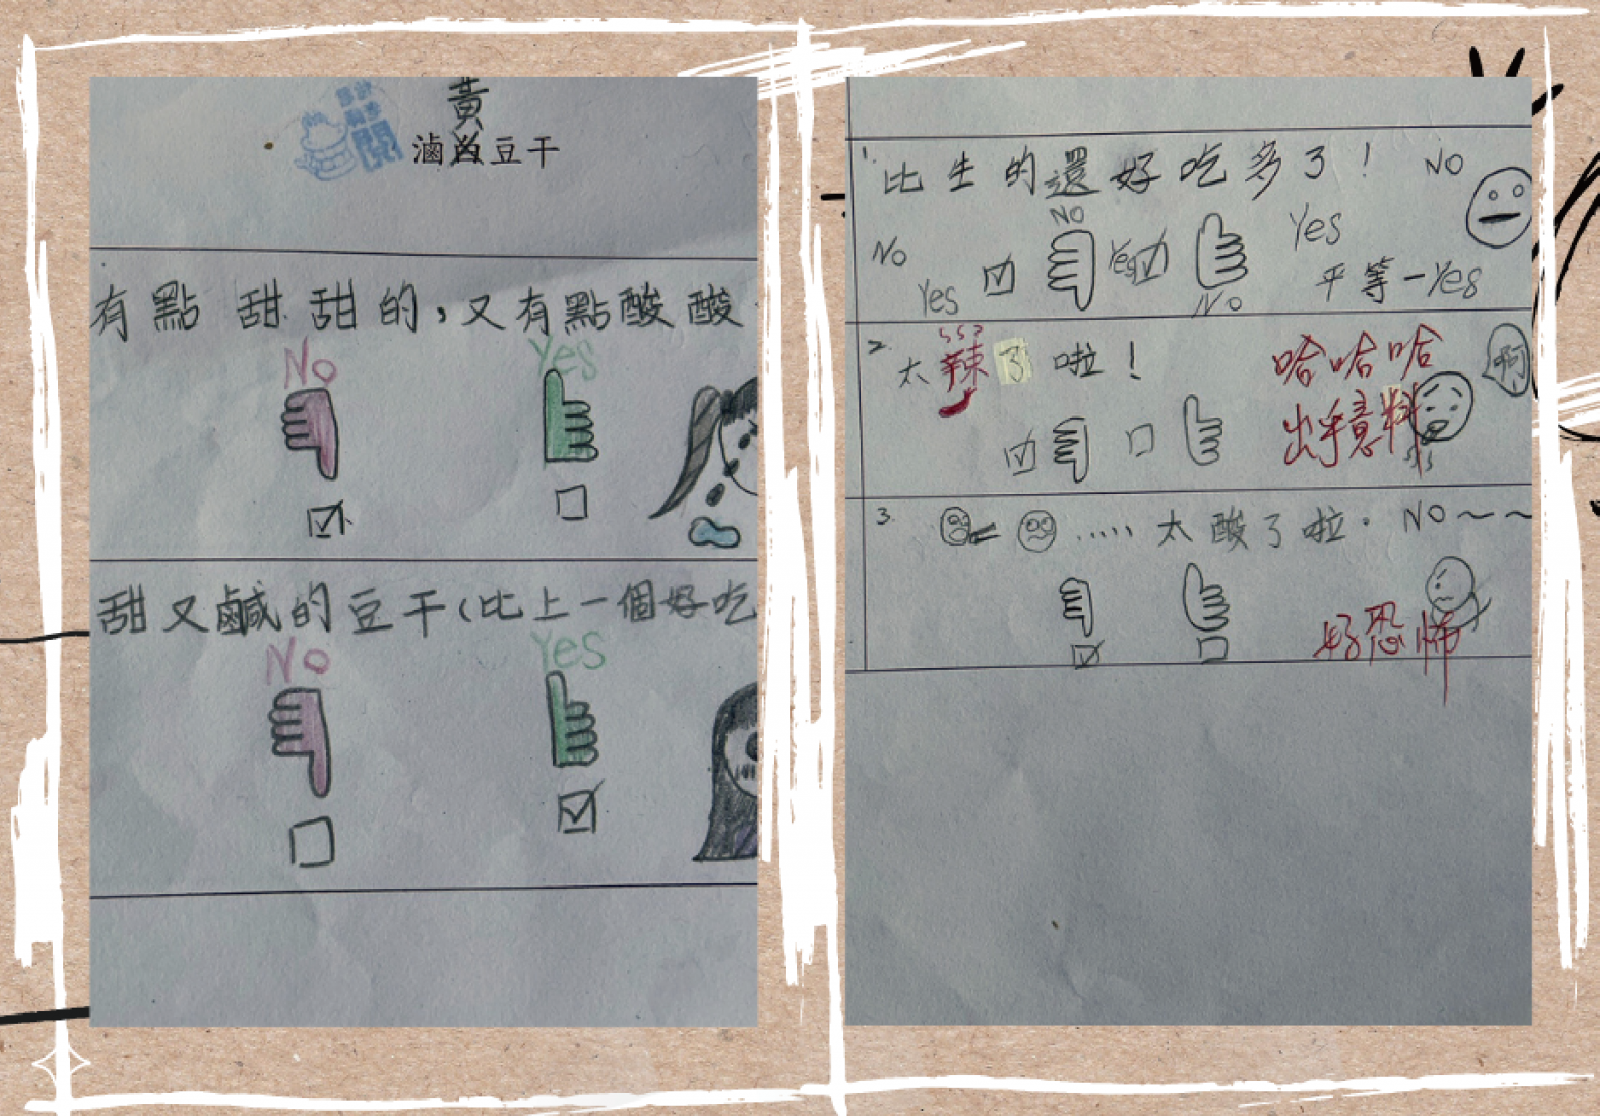 黃
滷豆干
有點甜甜的，又有點酸酸
No Yes
甜又鹹的豆干(比上一個好吃
No Yes
1. 比生的還好吃多了！ NO
NO
No Yes Yes Yes
No 平等-Yes
2. 太辣了啦！ 哈哈哈 啊
出乎意料
3. ..... 太酸了啦. NO~~
好恐怖